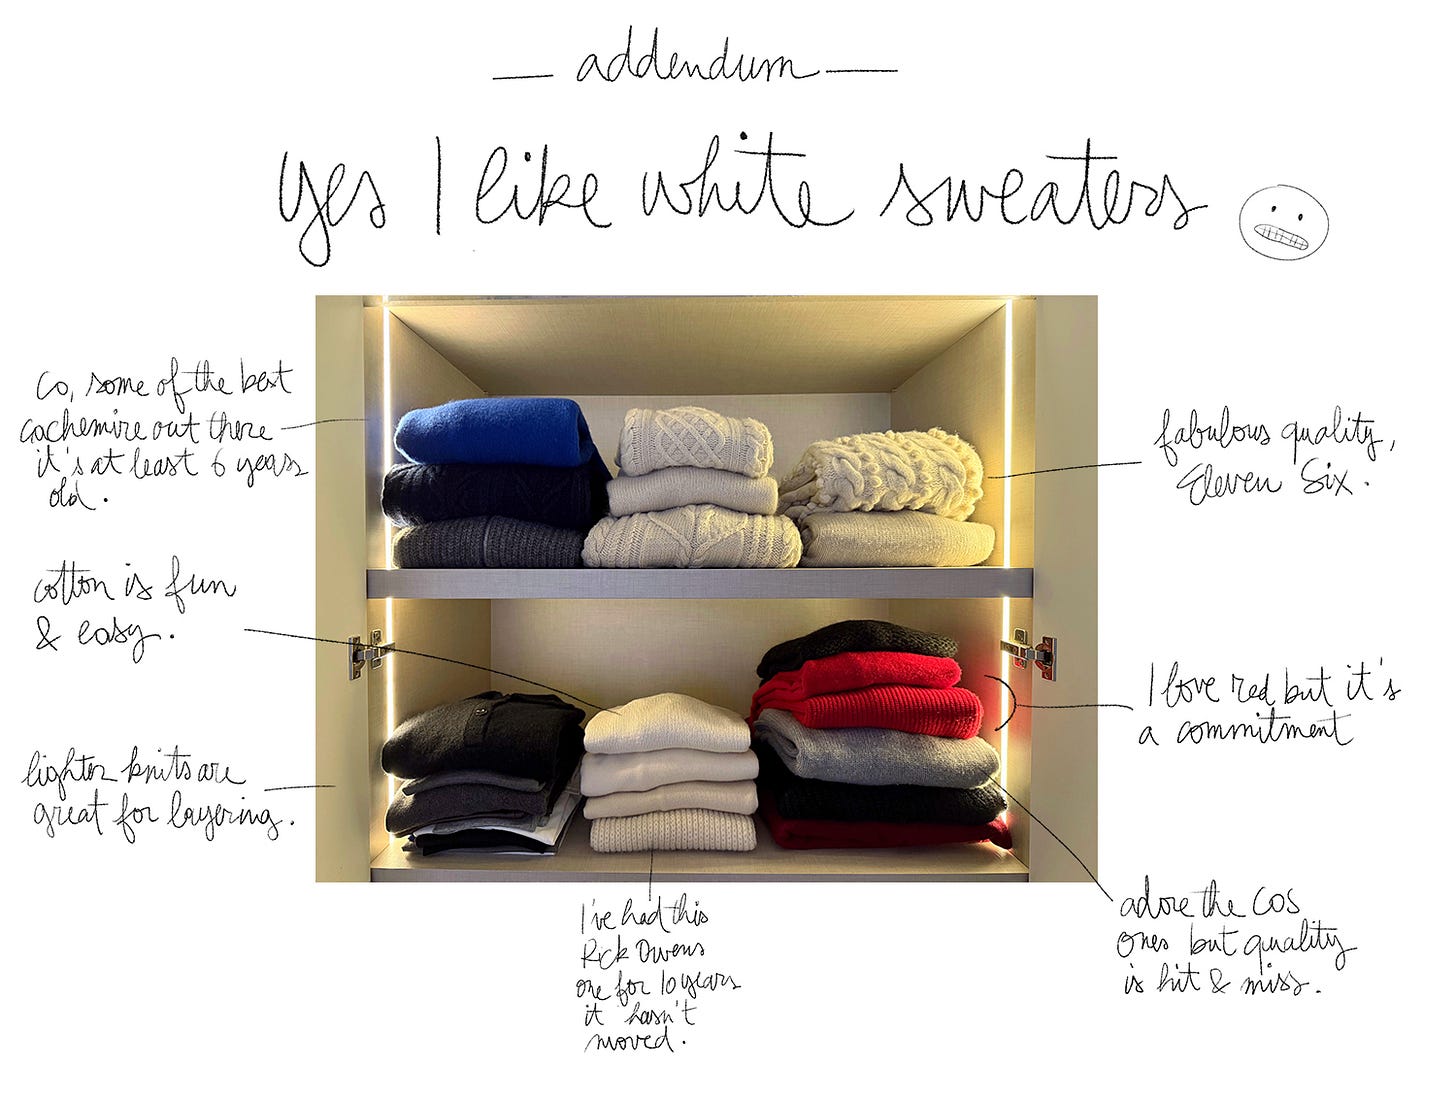 addendum
yes I like white sweaters
Co, some of the best
cachemire out there
it's at least 6 years
old.
fabulous quality,
Eleven Six.
cotton is fun
& easy.
I love red but it's
a commitment
lighter knits are
great for layering.
adore the COS
ones but quality
is hit & miss.
I've had this
Rick Owens
one for 10 years
it hasn't
moved.